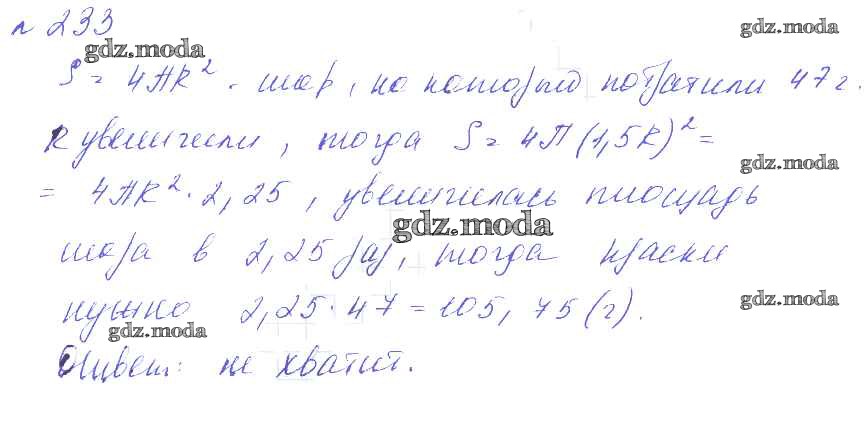 № 233
gdz.moda
gdz.moda
S = 4ПR². шар, на который потратили 47 г.
R увеличили, тогда S = 4П(1,5R)² =
gdz.moda
= 4ПR² · 2,25, увеличилась площадь
gdz.moda
шара в 2,25 раз, тогда краски
нужно 2,25 · 47 = 105,75 (г).
gdz.moda
gdz.moda
Ответ: не хватит.